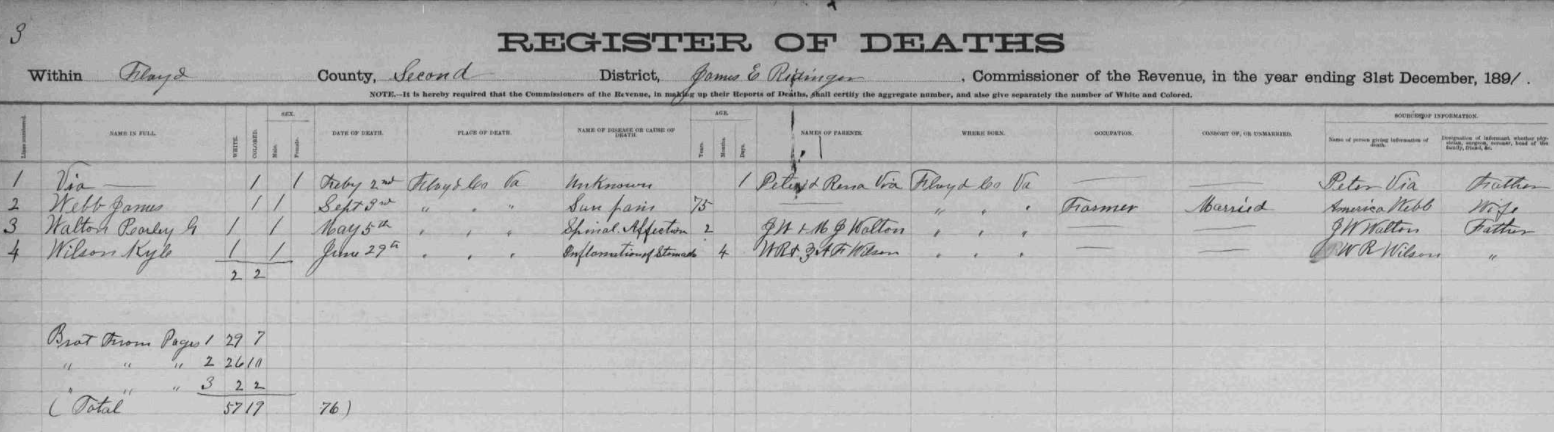 3
REGISTER OF DEATHS
Within Floyd County, Second District, James E Ridinger, Commissioner of the Revenue, in the year ending 31st December, 1891.
NOTE.—It is hereby required that the Commissioners of the Revenue, in making up their Reports of Deaths, shall certify the aggregate number, and also give separately the number of White and Colored.
Lines numbered. NAME IN FULL. WHITE. COLORED. SEX. Male. Female. DATE OF DEATH. PLACE OF DEATH. NAME OF DISEASE OR CAUSE OF DEATH. AGE. Years. Months. Days. NAMES OF PARENTS. WHERE BORN. OCCUPATION. CONSORT OF, OR UNMARRIED. SOURCES OF INFORMATION. Name of person giving information of death. Designation of informant whether physician, surgeon, coroner, head of the family, friend, &c.
1 Via — 1 1 Feby 2nd Floyd Co Va Unknown 1 Peter & Rena Via Floyd Co Va — — Peter Via Father
2 Webb James 1 1 Sept 3rd " " " Sun pain 75 — " " " Farmer Married America Webb Wife
3 Walton Pearley G 1 1 May 5th " " " Spinal Affection 2 J W & M J Walton " " " — — J W Walton Father
4 Wilson Kyle 1 1 June 29th " " " Inflamation of Stomach 4 W R & Z A F Wilson " " " — — W R Wilson "
2 2
Brot From Pages 1 29 7
" " " 2 26 10
" " " 3 2 2
( Total 57 19 76 )